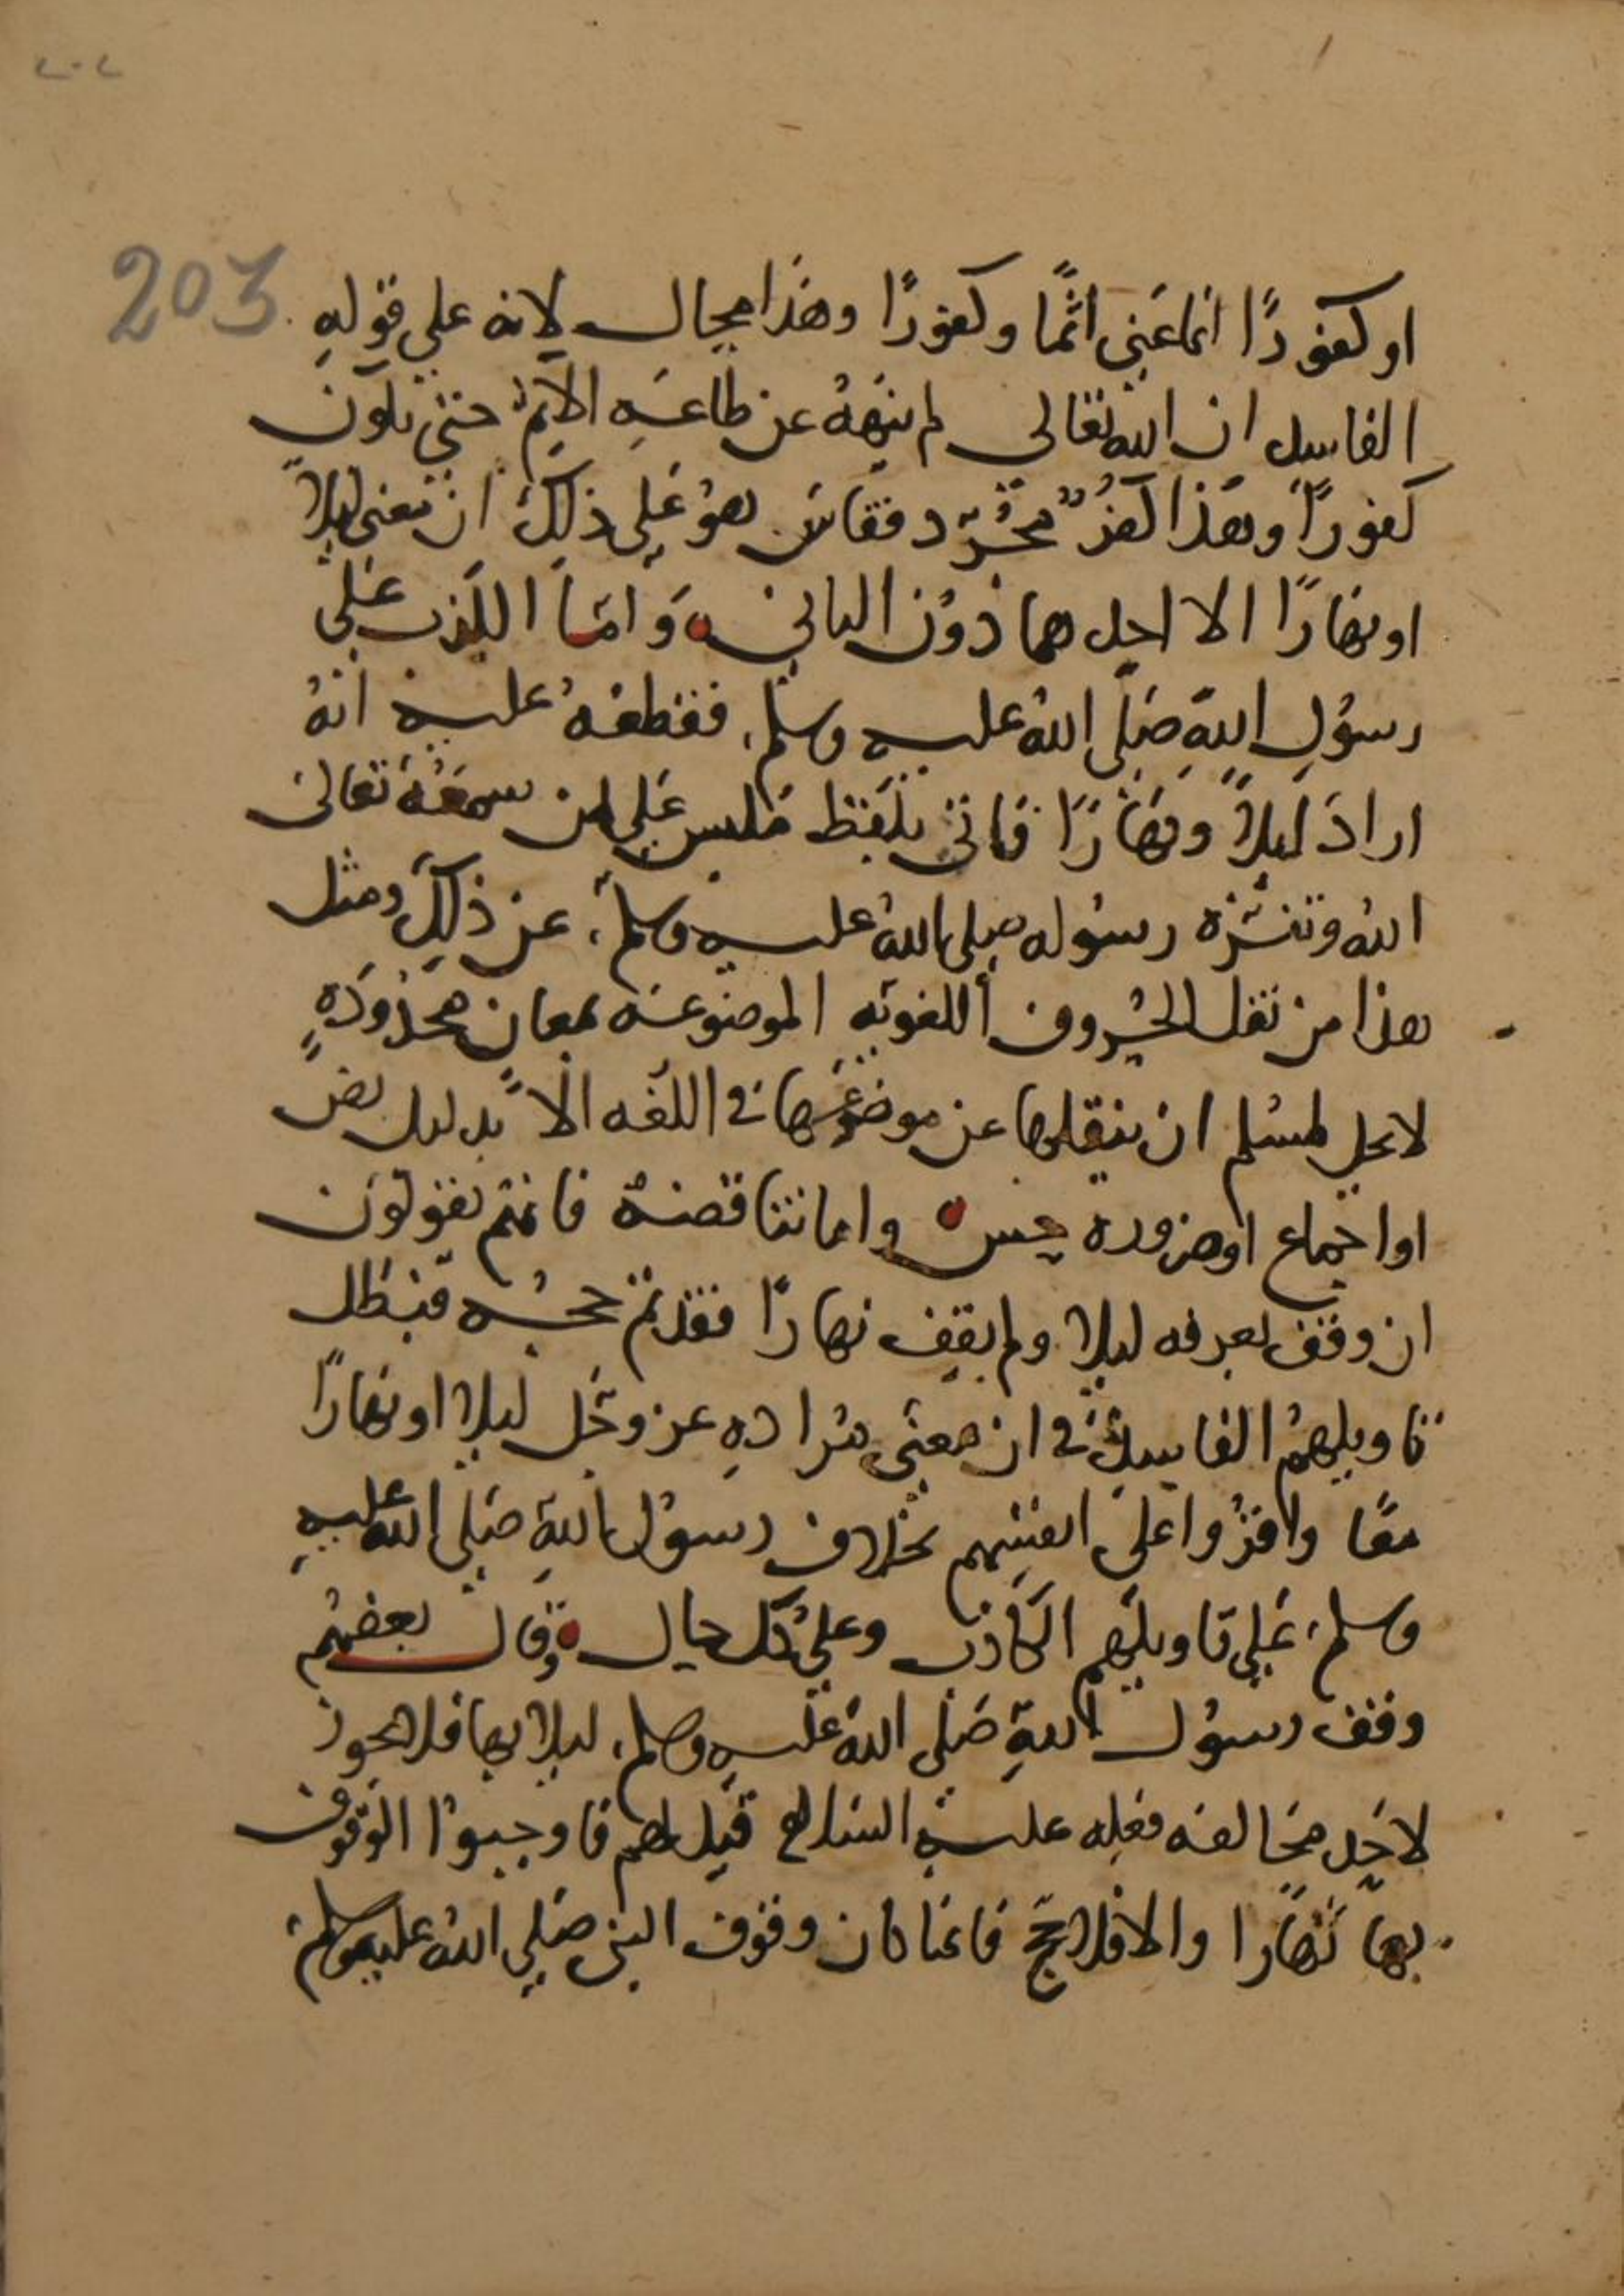 ٢٠٢
203
او كفورًا انما عنى اثمًا وكفورًا وهذا محال لانه على قوله
الفاسد ان الله تعالى لم ينهه عن طاعة الاثم حتى يكون
كفورًا وهذا كفرٌ مجرّد فقاس هو على ذلك ان معنى ليلًا
او نهارًا الا احدهما دون الثاني وامّا الكذب على
رسول الله صلى الله عليه وسلم فقطعه عليه انه
اراد ليلًا ونهارًا فاتى بلفظ ملبس على من سمعه تعالى
الله وتنزه رسوله صلى الله عليه وسلم عن ذلك ومثل
هذا من نقل الحروف اللغوية الموضوعة لمعان محدودة
لا يحل لمسلم ان ينقلها عن موضوعها في اللغه الا بدليل نص
او اجماع او ضروره حس واما تناقضه فانتم تقولون
ان وقف بعرفه ليلا ولم يقف نهارًا فقد تم حجه فبطل
تاويلهم الفاسد في ان معنى مراده عز وجل ليلا او نهارًا
معًا واقروا على انفسهم بخلاف رسول الله صلى الله عليه
وسلم على تاويلهم الكاذب وعلى كل حال وقال بعضهم
وقف رسول الله صلى الله عليه وسلم ليلا بها فلا يجوز
لاحد مخالفه فعله عليه السلام قيل لهم فاوجبوا الوقوف
بها نهارا والا فلا حج فانما كان وقوف النبي صلى الله عليه وسلم